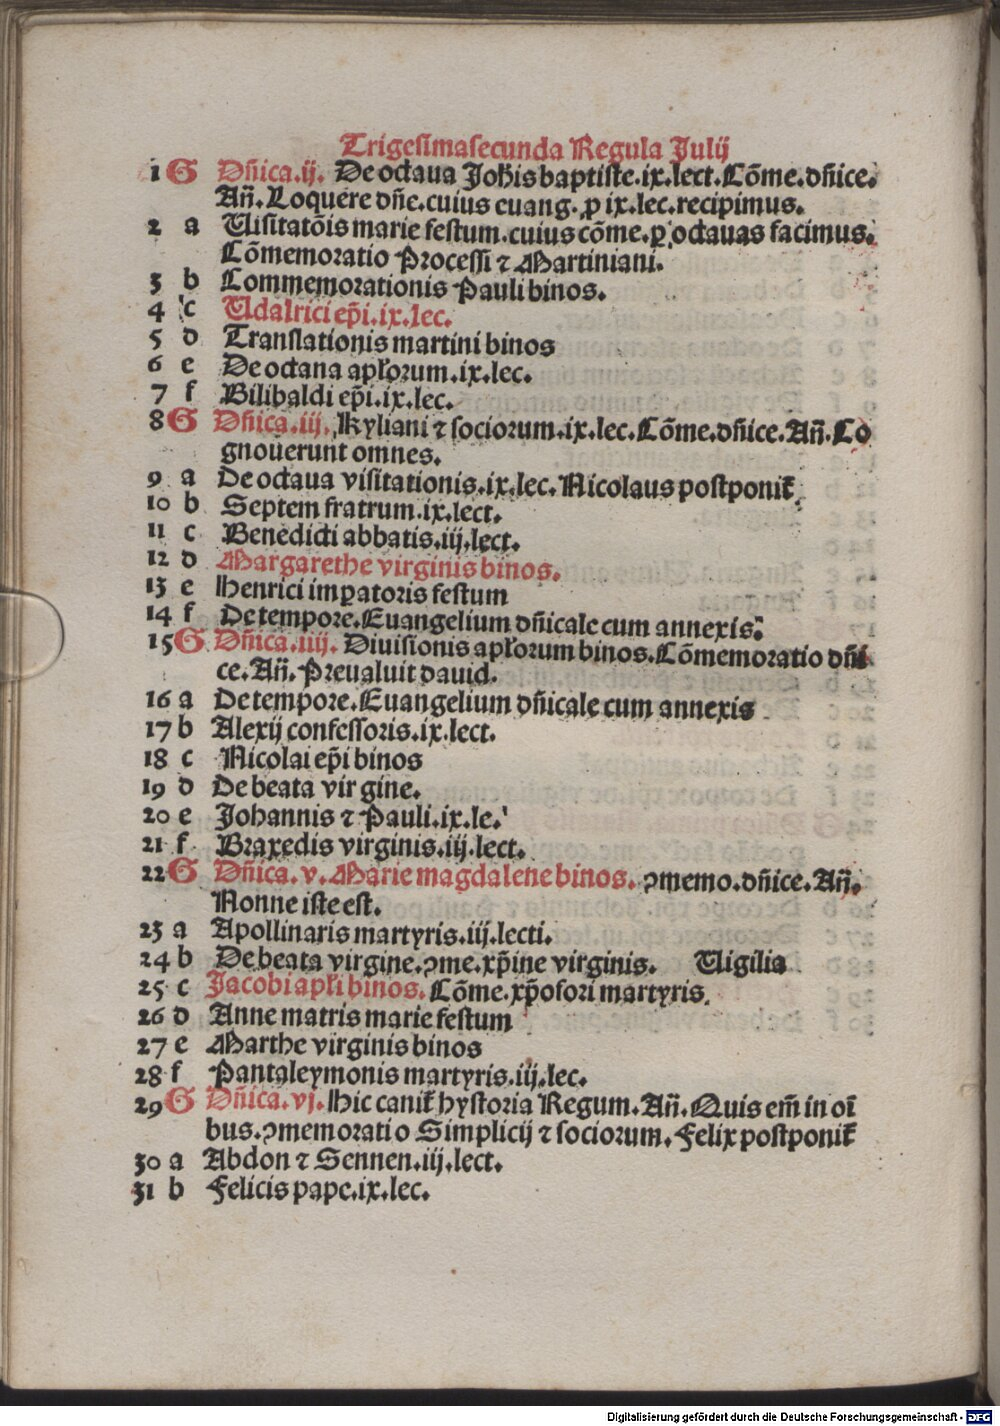 Trigesimasecunda Regula Julij
1 G Dn̄ica.ij. De octaua Joh̄is baptiste.ix.lect.Cōme.dn̄ice.
An̄.Loquere dn̄e.cuius euang.ꝑ ix.lec.recipimus.
2 a Uisitatōis marie festum.cuius cōme.ꝑ octauas facimus.
Cōmemoratio Processi ⁊ Martiniani.
3 b Commemorationis Pauli binos.
4 c Udalrici ep̄i.ix.lec.
5 d Translationis martini binos
6 e De octana apl̄orum.ix.lec.
7 f Bilibaldi ep̄i.ix.lec.
8 G Dn̄ica.iij. Kyliani ⁊ sociorum.ix.lec.Cōme.dn̄ice.An̄.Co
gnouerunt omnes.
9 a De octaua visitationis.ix.lec.Nicolaus postponit̄
10 b Septem fratrum.ix.lect.
11 c Benedicti abbatis.iij.lect.
12 d Margarethe virginis binos.
13 e Henrici imꝑatoris festum
14 f De tempore.Euangelium dn̄icale cum annexis.
15 G Dn̄ica.iiij. Diuisionis apl̄orum binos.Cōmemoratio dn̄i
ce.An̄.Preualuit dauid.
16 a De tempore.Euangelium dn̄icale cum annexis
17 b Alexij confessoris.ix.lect.
18 c Nicolai ep̄i binos
19 d De beata virgine.
20 e Johannis ⁊ Pauli.ix.le.
21 f Braxedis virginis.iij.lect.
22 G Dn̄ica.v.Marie magdalene binos. ꝯmemo.dn̄ice.An̄.
Nonne iste est.
23 a Apollinaris martyris.iij.lecti.
24 b De beata virgine.ꝯme.xp̄ine virginis. Uigilia
25 c Jacobi apl̄i binos.Cōme.xp̄ofori martyris.
26 d Anne matris marie festum
27 e Marthe virginis binos
28 f Pantaleymonis martyris.iij.lec.
29 G Dn̄ica.vj.Hic canit̄ hystoria Regum.An̄.Quis em̄ in oī
bus.ꝯmemoratio Simplicij ⁊ sociorum.Felix postponit̄
30 a Abdon ⁊ Sennen.iij.lect.
31 b Felicis pape.ix.lec.
Digitalisierung gefördert durch die Deutsche Forschungsgemeinschaft - DFG